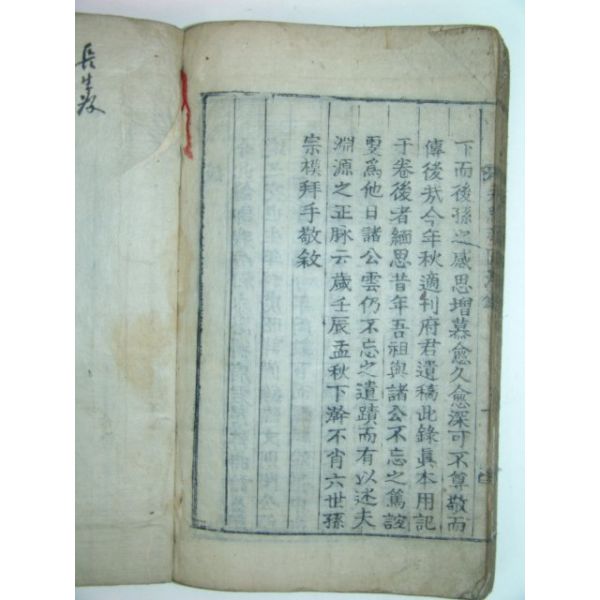 下而後孫之感思增慕愈久愈深可不尊敬而
傳後弑今年秋適刊府君遺稿此錄眞本用記
于卷後者緬思昔年吾祖與諸公不忘之篤諠
要爲他日諸公雲仍不忘之遺蹟而有以述夫
淵源之正脉云歲壬辰孟秋下澣不肖六世孫
宗模拜手敬敘
長生